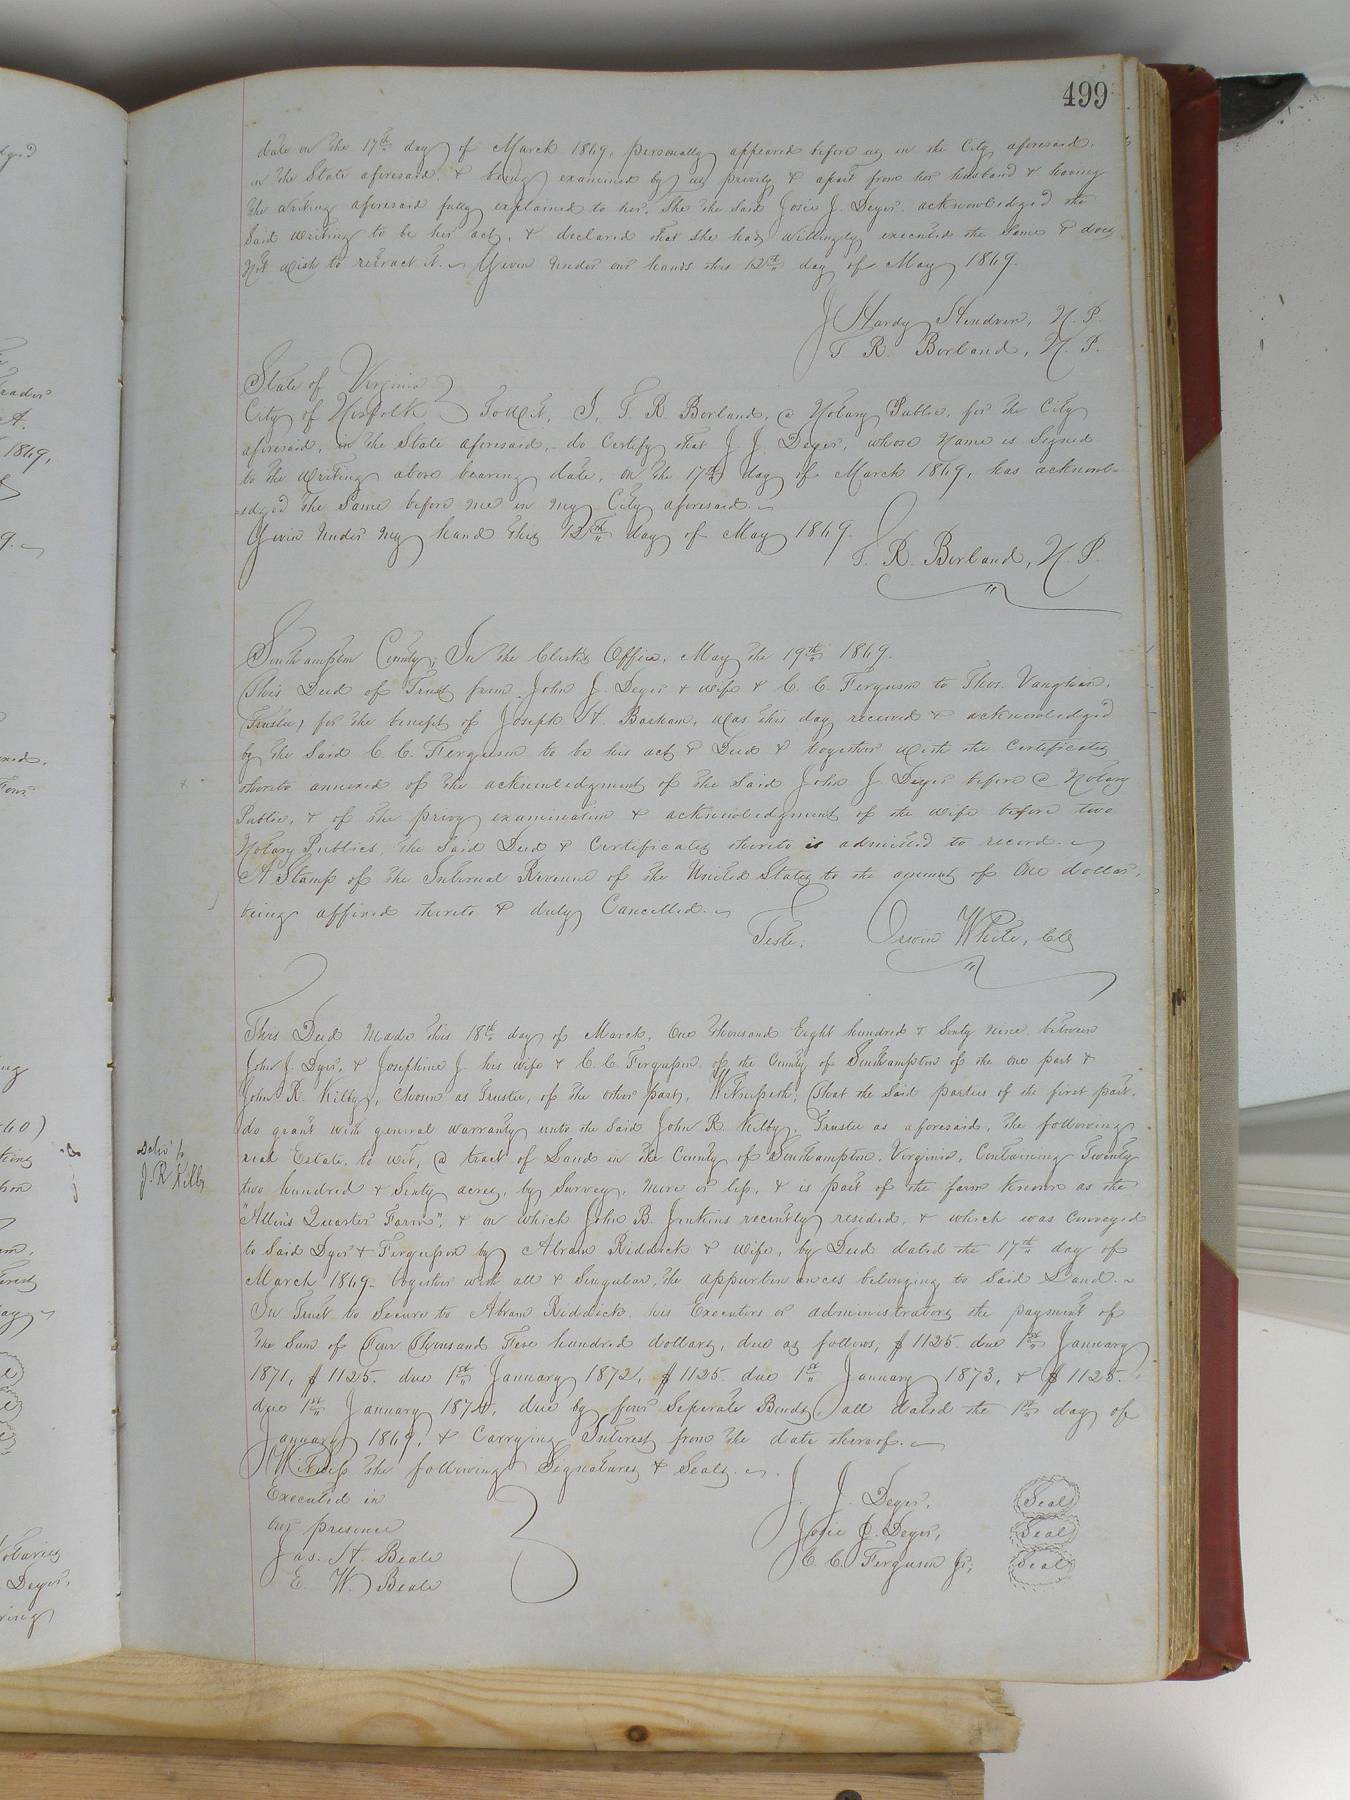 499
date on the 17th day of March 1869, personally appeared before us in the City aforesaid,
in the State aforesaid, & being examined by us privily & apart from her husband & having
the writing aforesaid fully explained to her, She the said Josie J. Deyer acknowledged the
Said writing to be her act, & declared that she had willingly executed the same & does
Not wish to retract it. Given under our hands this 12th day of May 1869.
J Hardy Hendren, N. P.
T. R. Borland, N. P.
State of Virginia
City of Norfolk To Wit, I, T. R. Borland, a Notary Public, for the City
aforesaid, in the State aforesaid, do Certify that J. J. Deyer, whose Name is Signed
to the Writing above bearing date, on the 17th day of March 1869, has acknowl-
=edged the Same before me in my City aforesaid.
Given under My hand this 12th day of May 1869.
T. R. Borland, N. P.
Southampton County, In the Clerk's Office, May the 19th 1869.
This Deed of Trust from John J. Deyer & wife & C. C. Ferguson to Thos. Vaughan,
(Trustee) for the benefit of Joseph H. Barham, Was this day received & acknowledged
by the Said C. C. Ferguson to be his act & Deed & together with the Certificates
thereto annexed of the acknowledgment of the Said John J. Deyer before a Notary
Public, & of the privy examination & acknowledgment of the wife before two
Notary Publics, the Said Deed & Certificates thereto is admitted to record.
A Stamp of the Internal Revenue of the United States to the amount of One dollar,
being affixed thereto & duly Cancelled.
Teste, Orwin White, Clk
This Deed Made this 18th day of March, One thousand Eight hundred & Sixty Nine between
John J. Dyer, & Josephine J. his wife & C. C. Fergusson of the County of Southampton of the one part &
John R. Kilby, Chosen as Trustee, of the other part, Witnesseth; That the Said parties of the first part,
do grant with general warranty unto the Said John R. Kilby, Trustee as aforesaid, the following
real Estate, to wit, a tract of Land in the County of Southampton, Virginia, Containing Twenty
two hundred & Sixty acres, by Survey, More or less, & is part of the farm known as the
"Allin's Quarter Farm", & on which John B. Jenkins recently resided, & which was Conveyed
to Said Dyer & Fergusson by Abram Riddick & wife, by Deed dated the 17th day of
March 1869 together with all & Singular, the appurtenances belonging to Said Land.
In Trust to Secure to Abram Riddick his Executors or administrators the payment of
the Sum of Four Thousand Five hundred dollars, due as follows, $1125. due 1st January
1871, $1125. due 1st January 1872, $1125. due 1st January 1873, & $1125.
due 1st January 1874, due by four Seperate Bonds, all dated the 1st day of
January 1869, & Carrying Interest from the date thereof.
Witness the following Signatures & Seals.
Executed in
our presence
Jas. H. Beale
E. W. Beale
J. J. Deyer, Seal
Josie J. Deyer, Seal
C. C. Ferguson Jr, Seal
Deliv' to
J. R Kilby